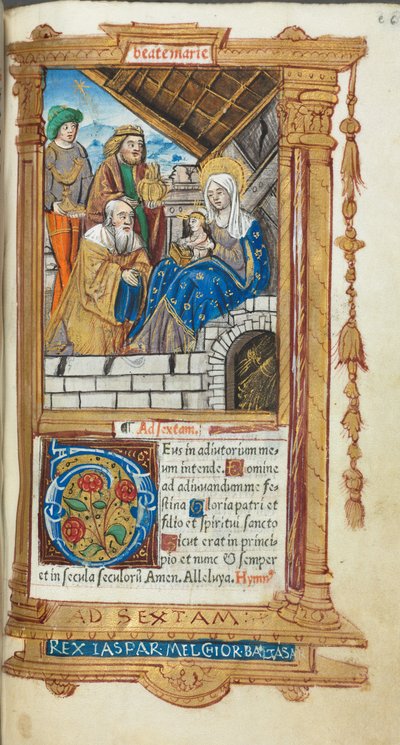 e 6
beate marie
¶ Ad sextam.
Eus in adiutorium me-
um intende. Domine
ad adiuvandum me fe-
stina Gloria patri et
filio et spiritui sancto
Sicut erat in princi-
pio et nunc & semper
et in secula seculorũ Amen. Alleluya. Hymnꝰ
AD SEXTAM:
REX IASPAR·MELCHIOR·BALTASA